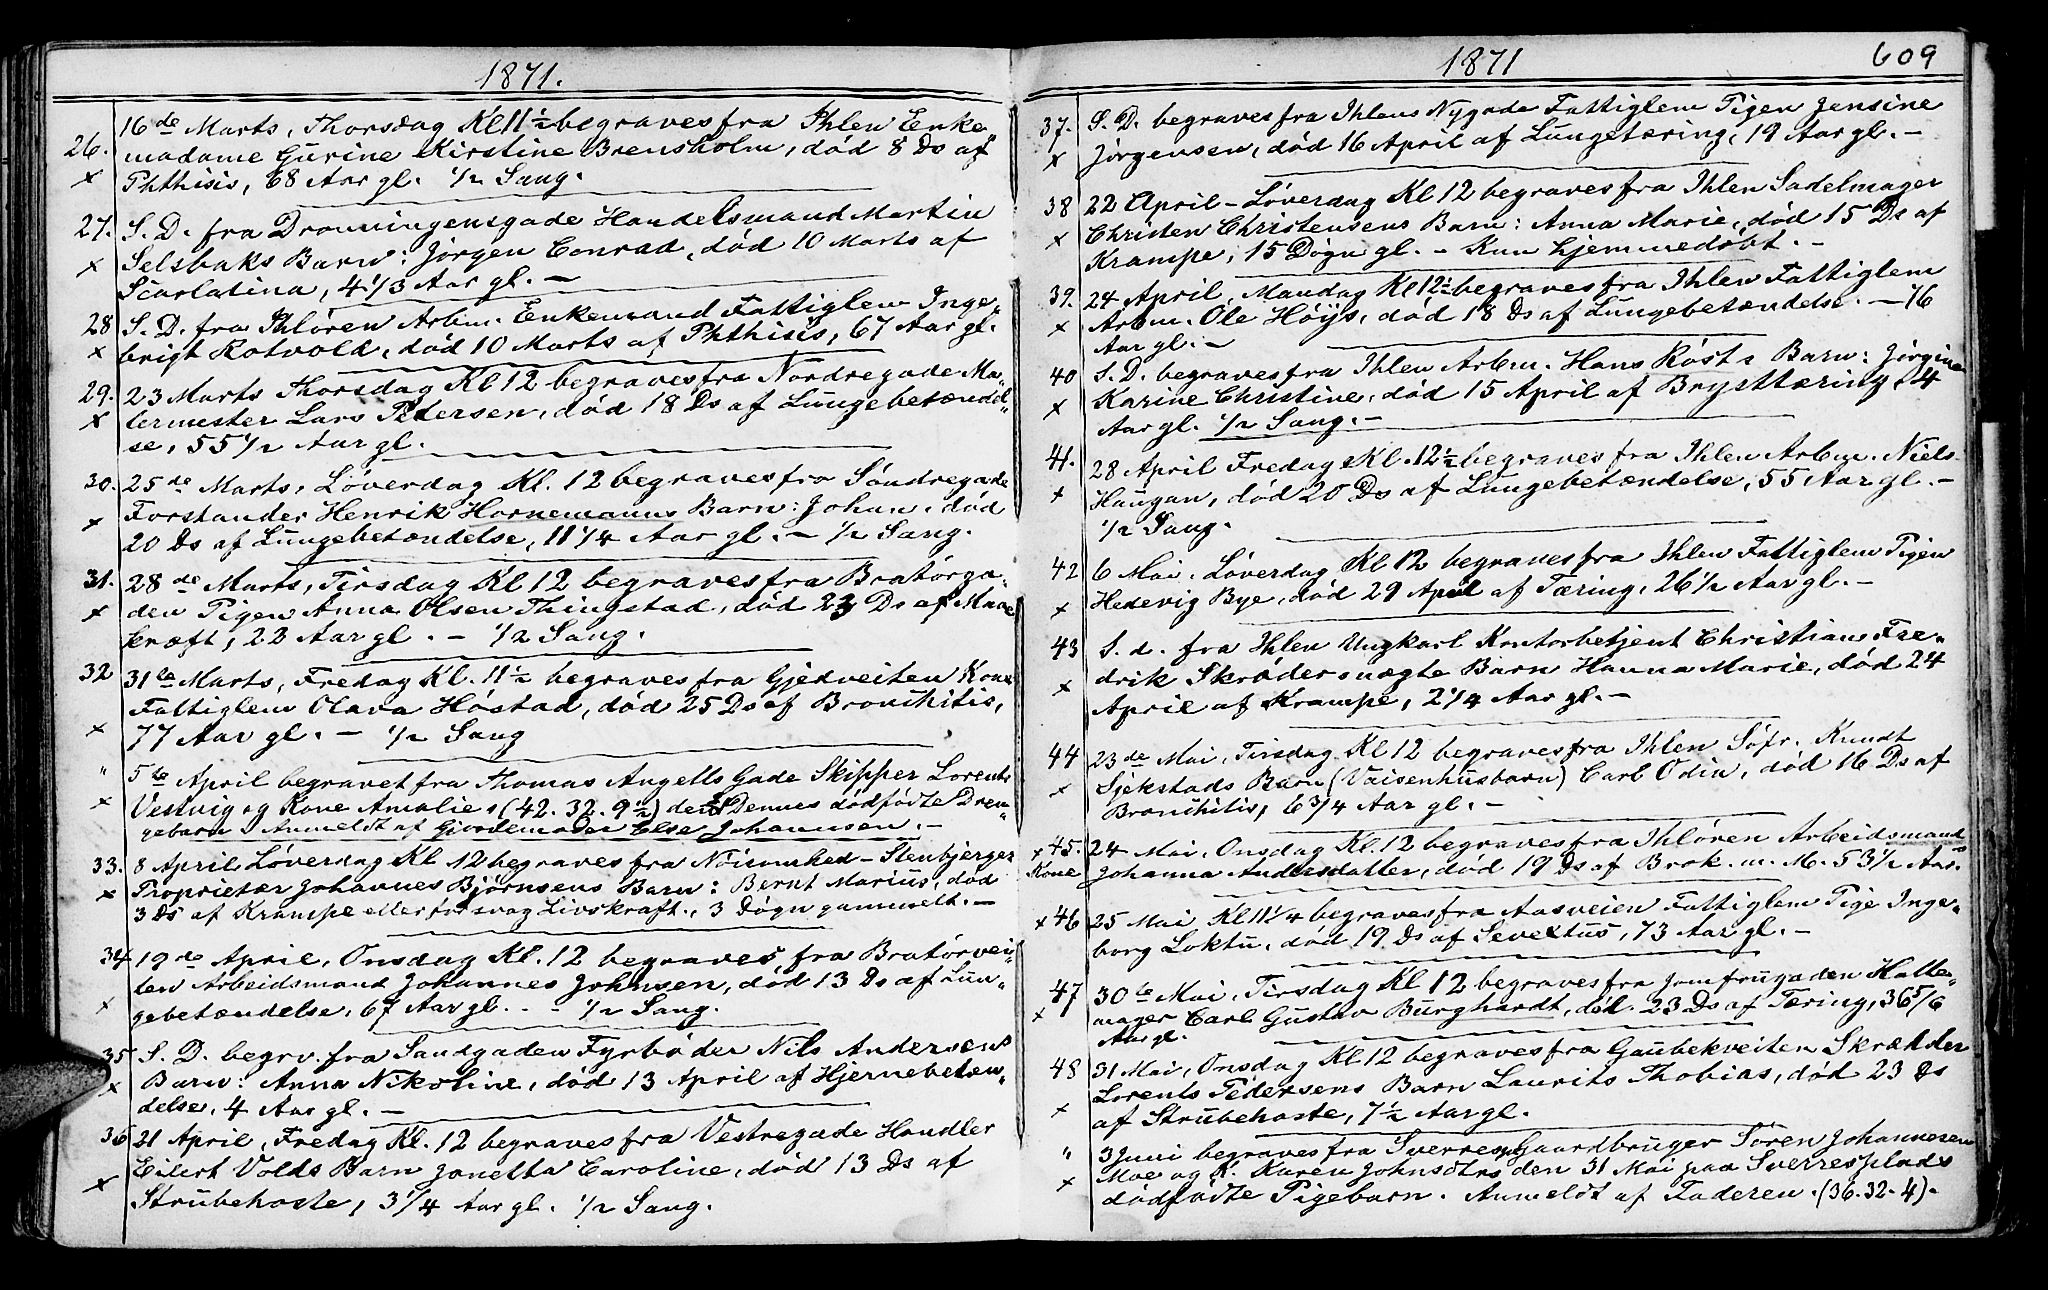 1871.
26. 16de Marts, Thorsdag Kl 11½ begraves fra Ihlen Enke„
madame Gurine Kirstine Brensholm, død 8 Ds af
× Phthisis, 68 Aar gl. ½ Sang.
27. S. D. fra Dronningensgade Handelsmand Martin
× Selsbaks Barn: Jørgen Conrad, død 10 Marts af
Scarlatina, 4 1/3 Aar gl. —
28 S. D. fra Ihløren Arbm. Enkemand Fattiglem Inge„
× brigt Rotvold, død 10 Marts af Phthisis, 67 Aar gl.
29. 23 Marts Thorsdag Kl 12 begraves fra Nordregade Ma„
× lermester Lars Petersen, død 18 Ds af Lungebetændel„
se, 55 1/2 Aar gl.
30. 25de Marts, Løverdag Kl. 12 begraves fra Søndregade
× Forstander Henrik Hornemanns Barn: Johan, død
20 Ds af Lungebetændelse, 11 1/4 Aar gl. — ½ Sang.
31. 28de Marts, Tirsdag Kl 12 begraves fra Bratørga„
× den Pigen Anna Olsen Thingstad, død 23 Ds af Mave
kræft, 22 Aar gl. — ½ Sang.
32 31te Marts, Fredag Kl. 11½ begraves fra Gjedveiten Kone
Fattiglem Olava Høstad, død 25 Ds af Bronchitis,
× 77 Aar gl. — ½ Sang
„ 5te April begravet fra Thomas Angells Gade Skipper Lorents
× Vestvig og Kone Amalies (42. 32. 9½) den Dennes dødfødte Dren„
gebarn. Anmeldt af Gjordemoder Else Johannsen. —
33. 8 April, Løverdag Kl 12 begraves fra Nøisomhed - Stenbjerget
× Proprietær Johannes Bjørnsens Barn: Bernt Marius, død
3 Ds af Krampe eller for svag Livskraft, 3 Døgn gammelt. —
34 19de April, Onsdag Kl. 12 begraves fra Bratørvei„
ten Arbeidsmand Johannes Johnsen, død 13 Ds af Lun„
× gebetændelse, 67 Aar gl. . - ½ Sang.
35 S. D. begrv. fra Sandgaden Fyrbøder Nils Andersens
× Barn: Anna Nikoline, død 13 April af Hjernebeten„
delse, 4 Aar gl. —
36 21 April, Fredag Kl. 12 begraves fra Vestregade Handler
× Eilert Volds Barn Janetta Caroline, død 13 Ds af
Strubehoste, 3 1/4 Aar gl. ½ Sang.
1871 609
37. S. D. begraves fra Ihlens Nygade Fattiglem Pigen Jensine
× Jørgensen, død 16 April af Lungetæring, 19 Aar gl. —
38 22 April - Løverdag Kl 12 begraves fra Ihlen Sadelmager
× Christen Christensens Barn: Anna Marie, død 15 Ds af
Krampe, 15 Døgn gl. — Kun hjemmedøbt. —
39. 24 April, Mandag Kl 12½ begraves fra Ihlen Fattiglem
× Arbm. Ole Høijs, død 18 Ds af Lungebetændelse. — 76
Aar gl. —
40 S. D. begraves fra Ihlen Arbm. Hans Røsts Barn: Jørgine
× Karine Christine, død 15 April af Brysttæring, 4
Aar gl. ½ Sang. —
41. 28 April Fredag Kl. 12½ begraves fra Ihlen Arbm. Niels
× Haugan, død 20 Ds af Lungebetændelse, 55 Aar gl. —
½ Sang.
42 6 Mai. Løverdag Kl 12 begraves fra Ihlen Fattiglem Pigen
× Hedevig Bye, død 29 April af Tæring, 26 1/2 Aar gl. —
43 S. d. fra Ihlen Ungkarl Kontorbetjent Christian Fre„
× drik Skrøders uægte Barn Hanna Marie, død 24
April af Krampe, 2 1/4 Aar gl. —
44 23de Mai, Tirsdag Kl 12 begraves fra Ihlen Søfr. Knudt
× Sjekstads Barn (Vaisenhusbarn) Carl Odin, død 16 Ds af
Bronchitis, 6 3/4 Aar gl. —
× 45. 24 Mai, Onsdag Kl 12 begraves fra Ihløren Arbeidsmands
Kone Johanna Andersdatter, død 19 Ds af Brok. m. M. 53½ Aar.
× 46 25 Mai Kl 11 1/4 begraves fra Aasveien Fattiglem Pige Inge„
borg Loktu, død 19 Ds af Sevectus, 73 Aar gl. —
47 30te Mai, Tirsdag Kl 12 begraves fra Jomfrugaden Hatte„
× mager Carl Gustav Burghardt, død. 23 Ds af Tæring, 36 5/6
Aar gl.
48 31 Mai, Onsdag Kl 12 begraves fra Gaubekveiten Skrædder
Lorents Pedersens Barn Laurits Thobias, død 23 Ds
× af Strubehoste, 7½ Aar gl.
„ 3 Juni begraves fra Sverresp Gaardbruger Søren Johannesen
× Moe og K. Karen Johnsdtrs den 31 Mai paa Sverresplads
dødfødte Pigebarn. Anmeldt af Faderen. (36. 32. 4).